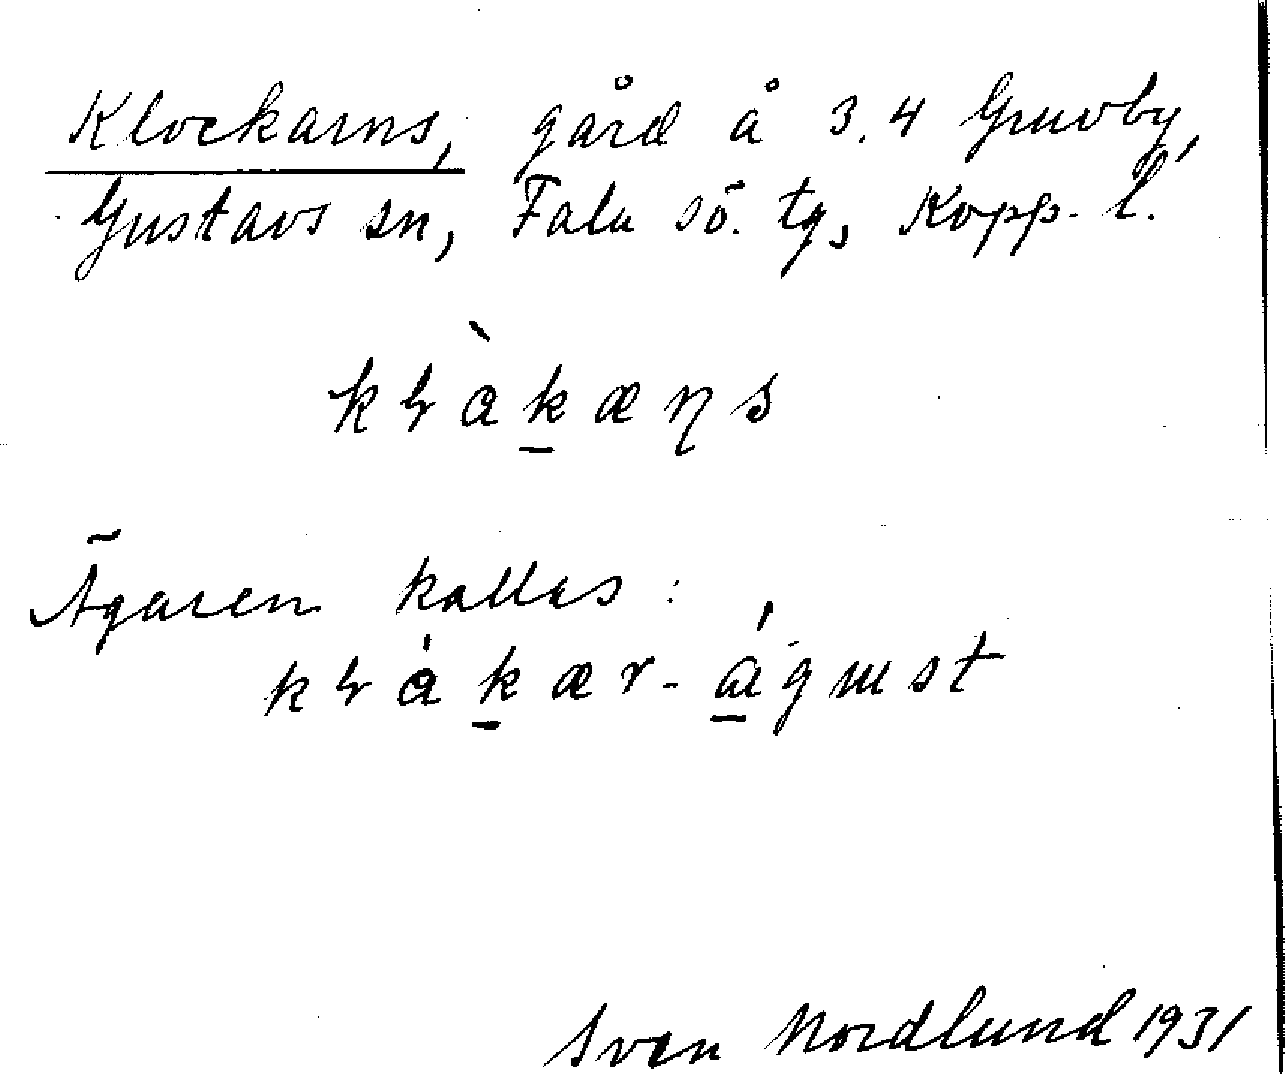 Klockarns, gård å 3.4 Gruvby,
Gustavs sn, Falu sö. tg, Kopp. l.
kɽàk̠æɳs
Ägaren kallas:
kɽàk̠ær-á̠gɯst
Sven Nordlund 1931